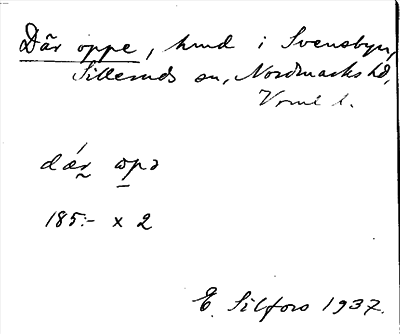 Där oppe, hmd i Svensbyn,
Silleruds sn, Nordmarks hd,
Vrml l.
dǽr ωpə
185:- x 2
E. Silfors 1937.